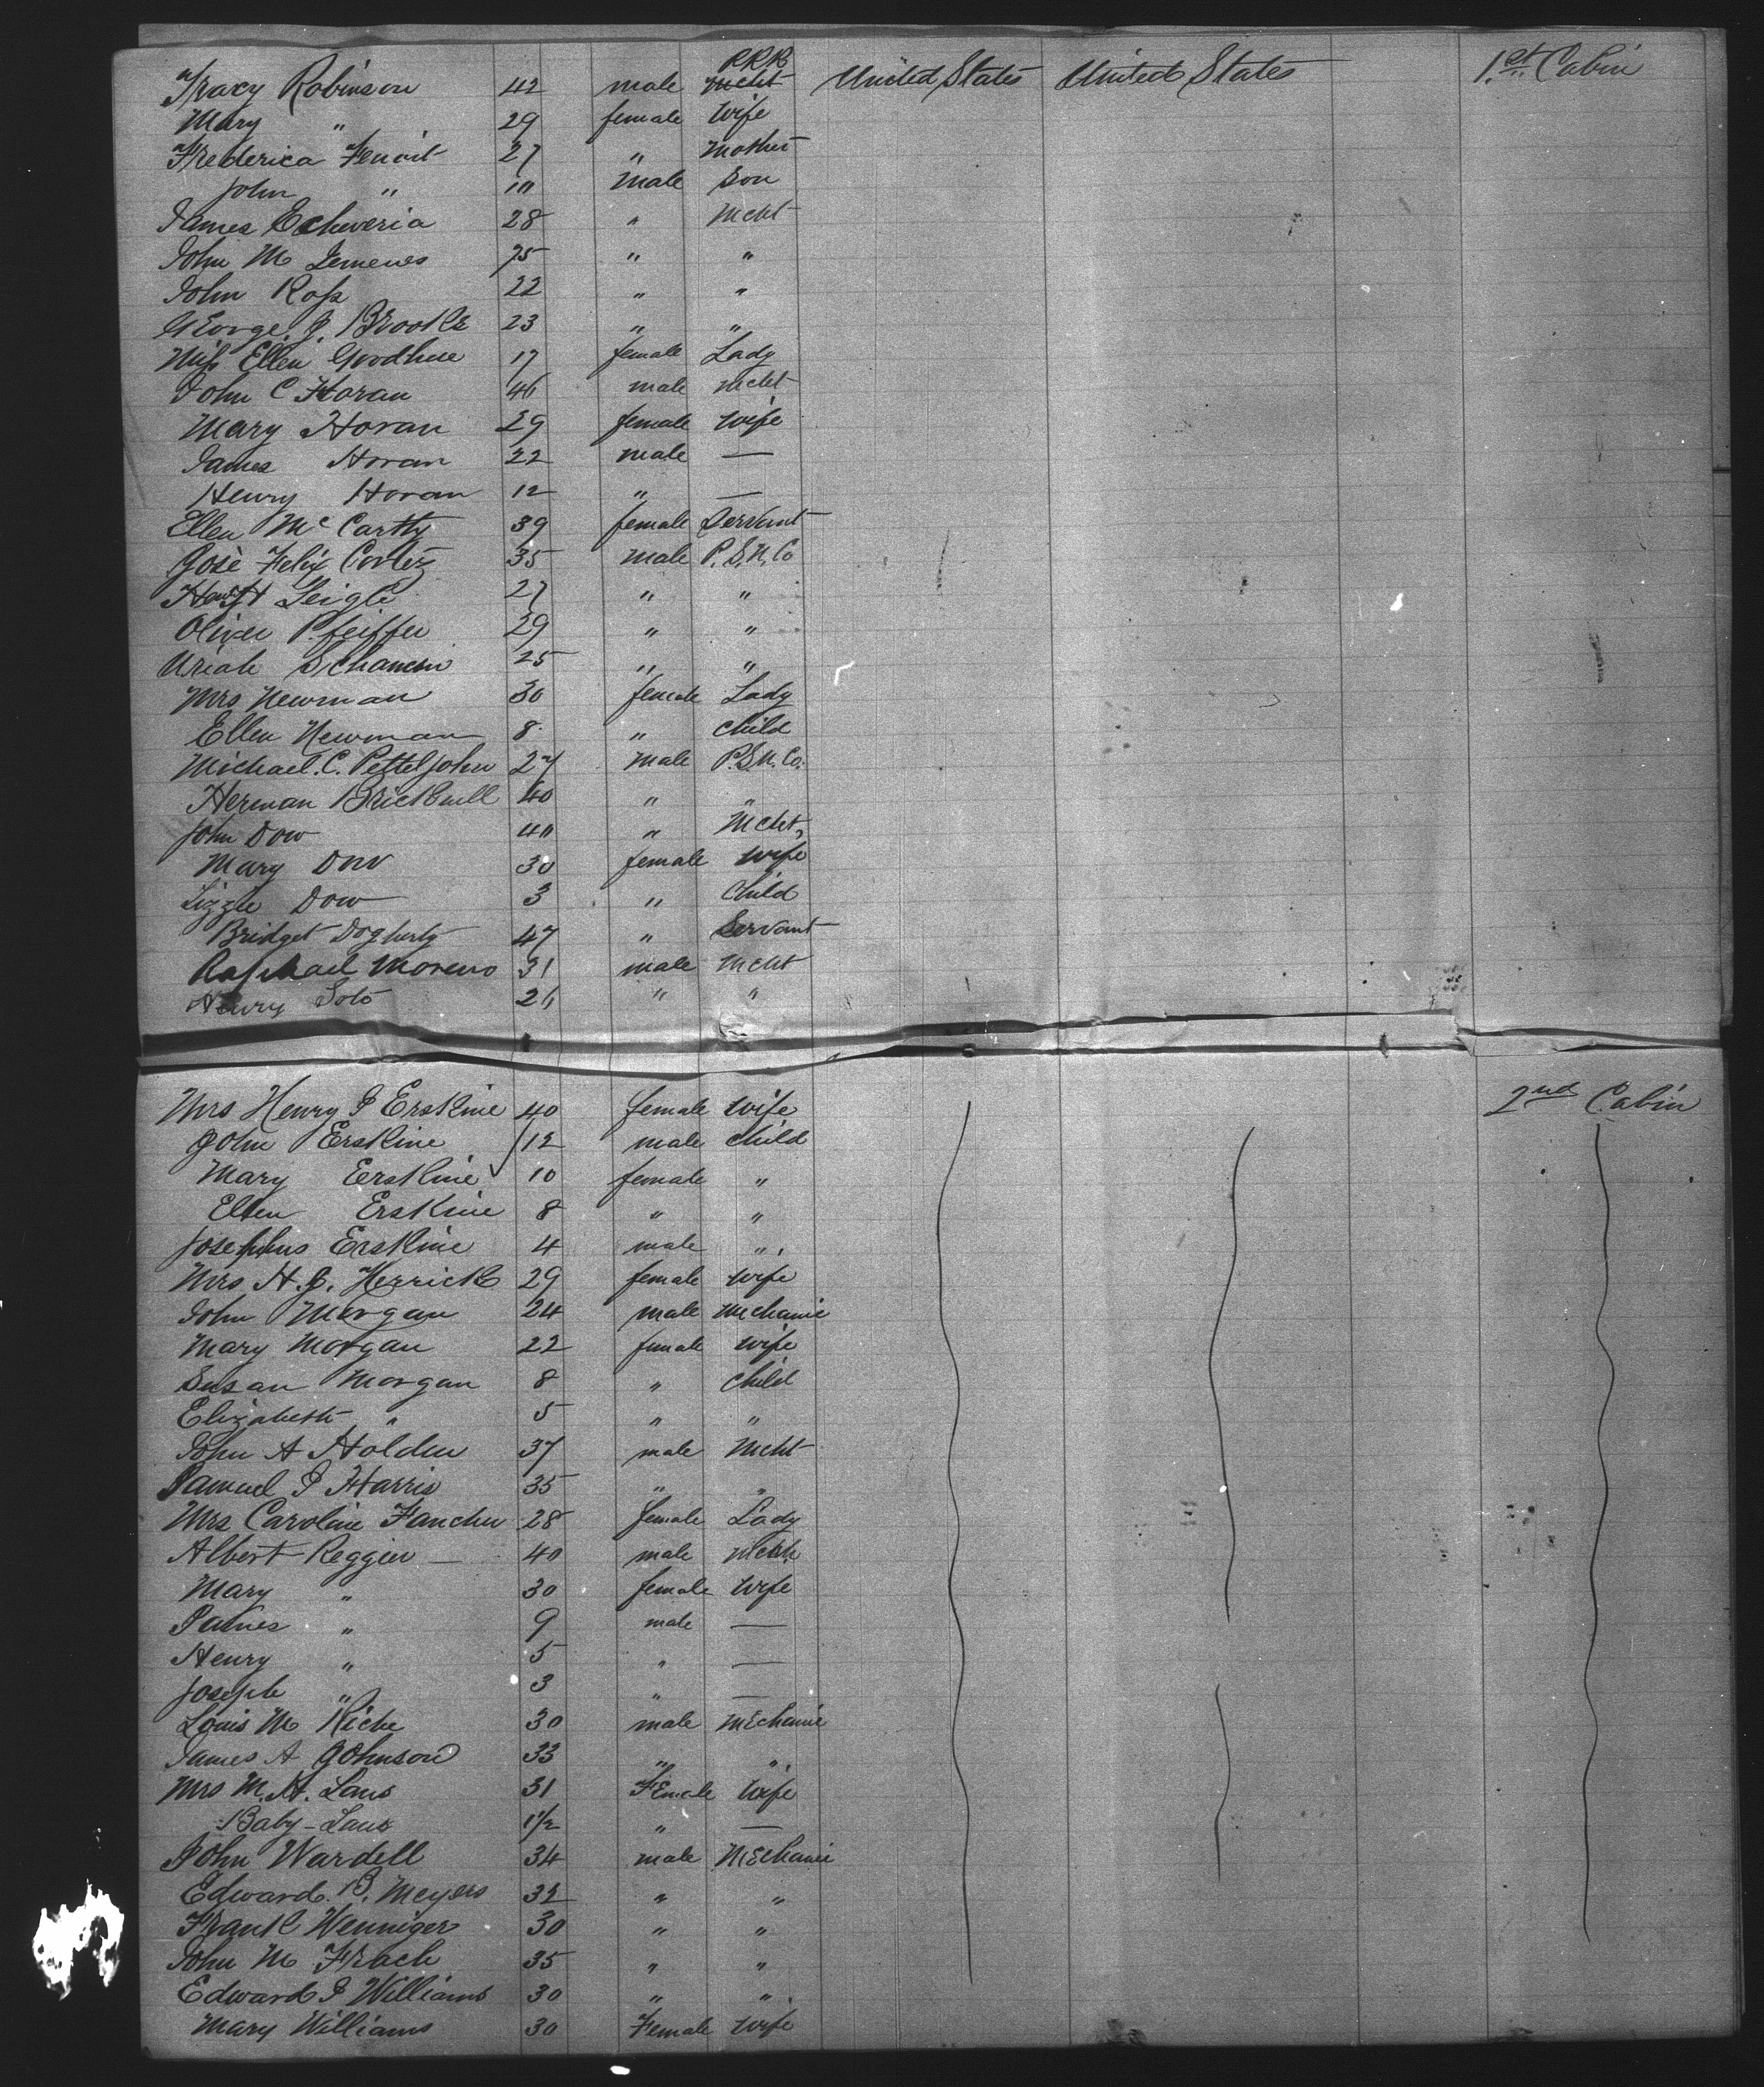 PRR
Tracy Robinson 42 male Mcht United States United States 1st Cabin
Mary " 29 female wife
Frederica Fenoit 27 " Mother
John " 10 male Son
James Echeveria 28 " Mcht
John M Jemenes 75 " "
John Ross 22 " "
George J. Brooks 23 " "
Miss Ellen Goodhue 17 female Lady
John C Horan 46 male Mcht
Mary Horan 29 female wife
James Horan 22 male —
Henry Horan 12 " —
Ellen McCarthy 39 female Servant
José Felix Cortez 35 male P.S.N.Co
Leigle 27 " "
Oliver Pfeiffer 29 " "
Uriah 25 " "
Mrs Newman 30 female Lady
Ellen Newman 8 " child
Michael. C. Petteljohn 27 male P.S.N.Co.
Herman Brickwell 40 " "
John Dow 40 " Mcht,
Mary Dow 30 female wife
Lizzie Dow 3 " Child
Bridget Dogherty 47 " Servant
Raphael Moreno 31 male Mcht
Henry Soto 26 " "
Mrs Henry J Erskine 40 female wife 2nd Cabin
John Erskine 12 male child
Mary Erskine 10 female "
Ellen Erskine 8 " "
Josephus Erskine 4 male "
Mrs H. J. Herrick 29 female wife
John Morgan 24 male Mechanic
Mary Morgan 22 female wife
Susan Morgan 8 " Child
Elizabeth " 5 " "
John A Holden 37 male Mcht
Samuel J Harris 35 " "
Mrs Caroline Fancher 28 female Lady
Albert Reggier — 40 male Mcht
Mary " 30 female wife
James " 9 male —
Henry " 5 " —
Joseph " 3 " —
Louis M Riche 30 male Mechanic
James A Johnson 33 " "
Mrs M. H. Laus 31 Female wife
Baby - Laus 1½ " —
John Wardell 34 male Mechanic
Edward. B. Meyers 32 " "
Frank Wenniger 30 " "
John M Frach 35 " "
Edward J Williams 30 " "
Mary Williams 30 Female wife